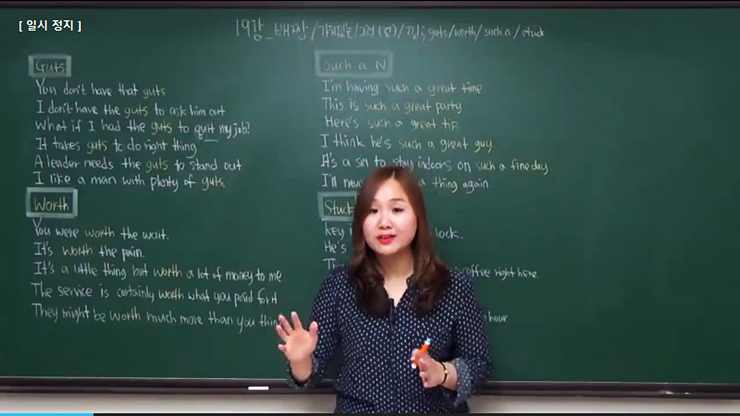 [ 일시 정지 ]
19강_배짱/가치있는/그런 (것)/낌; guts/worth/such a/stuck
Guts
You don't have that guts
I don't have the guts to ask him out
What if I had the guts to quit my job?
It takes guts to do right thing
A leader needs the guts to stand out.
I like a man with plenty of guts.
Worth
You were worth the wait.
It's worth the pain.
It's a little thing but worth a lot of money to me
The service is certainly worth what you paid for it
They might be worth much more than you thin
Such a N
I'm having such a great time
This is such a great party
Here's such a great tip
I think he's such a great guy
It's a sin to stay indoors on such a fine day
I'll a thing again
Stuck
key lock.
He's
coffee right here.
hour.